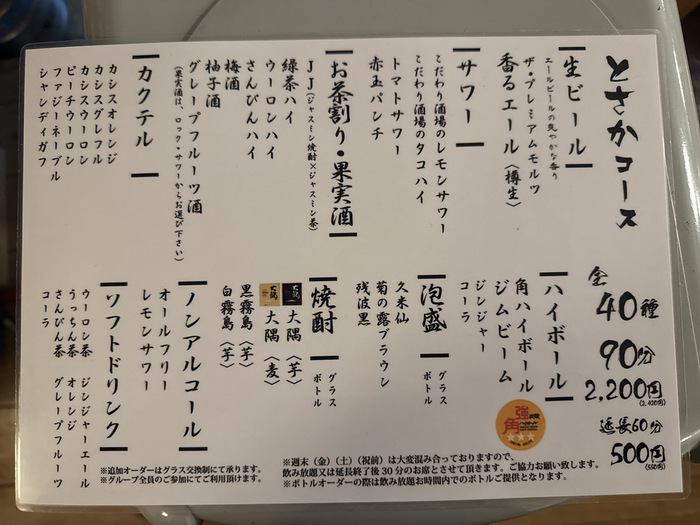 とさかコース
全40種
90分
2,200円
(2,420円)
延長60分
500円
(550円)
生ビール
エールビールの爽やかな香り
ザ・プレミアムモルツ
香るエール〈樽生〉
サワー
こだわり酒場のレモンサワー
こだわり酒場のタコハイ
トマトサワー
赤玉パンチ
お茶割り・果実酒
JJ(ジャスミン焼酎×ジャスミン茶)
緑茶ハイ
ウーロンハイ
さんぴんハイ
梅酒
柚子酒
グレープフルーツ酒
(果実酒は、ロック・サワーからお選び下さい)
カクテル
カシスオレンジ
カシスグレフル
カシスウーロン
ピーチウーロン
ファジーネーブル
シャンディガフ
ハイボール
角ハイボール
ジムビーム
ジンジャー
コーラ
強炭酸
角
ハイボール
泡盛
グラス
ボトル
久米仙
菊の露ブラウン
残波黒
焼酎
グラス
ボトル
大隅
大隅〈芋〉
大隅
大隅〈麦〉
黒霧島〈芋〉
白霧島〈芋〉
ノンアルコール
オールフリー
レモンサワー
ソフトドリンク
ウーロン茶 ジンジャーエール
うっちん茶 オレンジ
さんぴん茶 グレープフルーツ
コーラ
※週末（金）（土）（祝前）は大変混み合っておりますので、
飲み放題又は延長終了後30分のお席とさせて頂きます。ご協力お願い致します。
※ボトルオーダーの際は飲み放題お時間内でのボトルご提供となります。
※追加オーダーはグラス交換制にて承ります。
※グループ全員のご参加にてご利用頂けます。